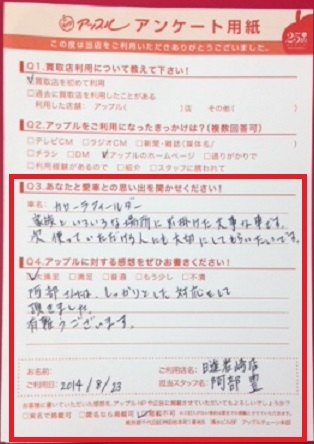 アップル アンケート用紙
25th
この度は当店をご利用いただきありがとうございました。
Q1.買取店利用について教えて下さい!
買取店を初めて利用
□過去に買取店を利用したことがある
利用した店舗: アップル( )店 その他( )
Q2.アップルをご利用になったきっかけは?(複数回答可)
□テレビCM □ラジオCM □新聞・雑誌(媒体名/ )
□チラシ □DM アップルのホームページ □通りがかりで
□利用経験があるので □紹介 □スタッフに誘われて
Q3.あなたと愛車との思い出を聞かせください!
車名: カローラフィールダー
家族といろいろな場所に出掛けた大事な車です。
次 使っていただける人にも大切にしてもらいたいです。
Q4.アップルに対する感想をぜひお書きください!
大満足 □満足 □普通 □もう少し □不満
阿部さんは、しっかりとした対応をして
頂きました。
有難うございます。
お名前:
ご利用日: 2014/8/23
ご利用店名:
担当スタッフ名: 阿部 豊
□実名で掲載可 □匿名なら掲載可 掲載不可